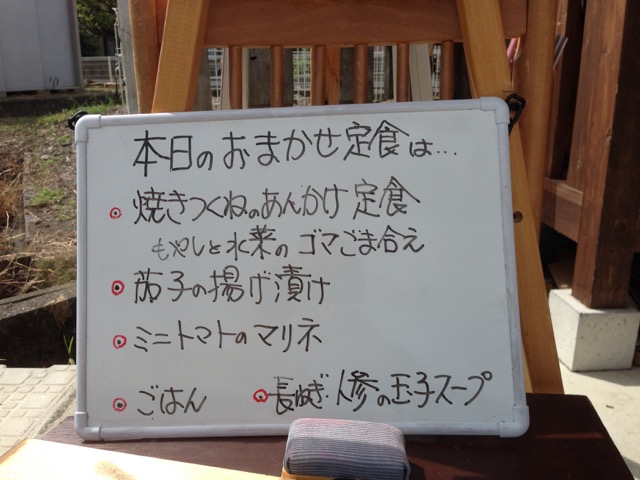 本日のおまかせ定食は...
焼きつくねのあんかけ定食
もやしと水菜のゴマごま合え
茄子の揚げ漬け
ミニトマトのマリネ
ごはん
長ねぎ・人参の玉子スープ